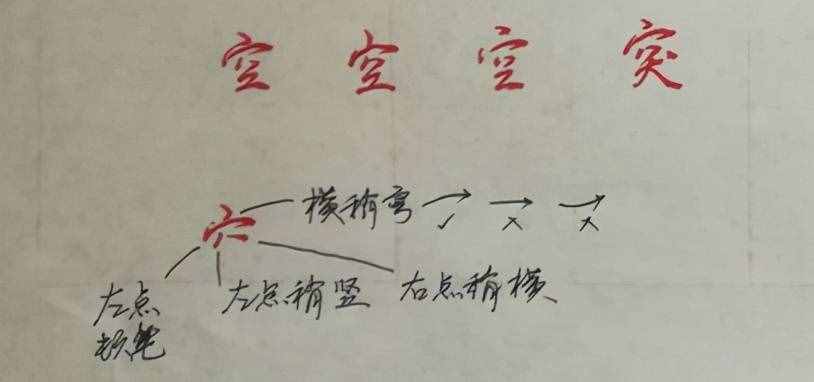 空 空 空 突
穴 横稍弯 ✓ × ×
左点 左点稍竖 右点稍横
顿笔